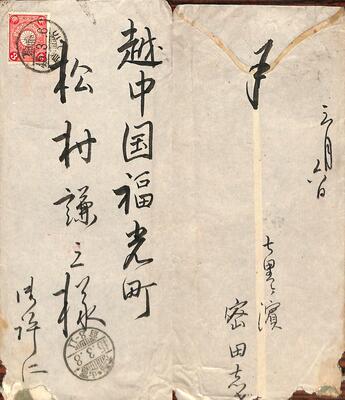 越中国福光町
松村謙三様
三月八日
七里ヶ濱
密田